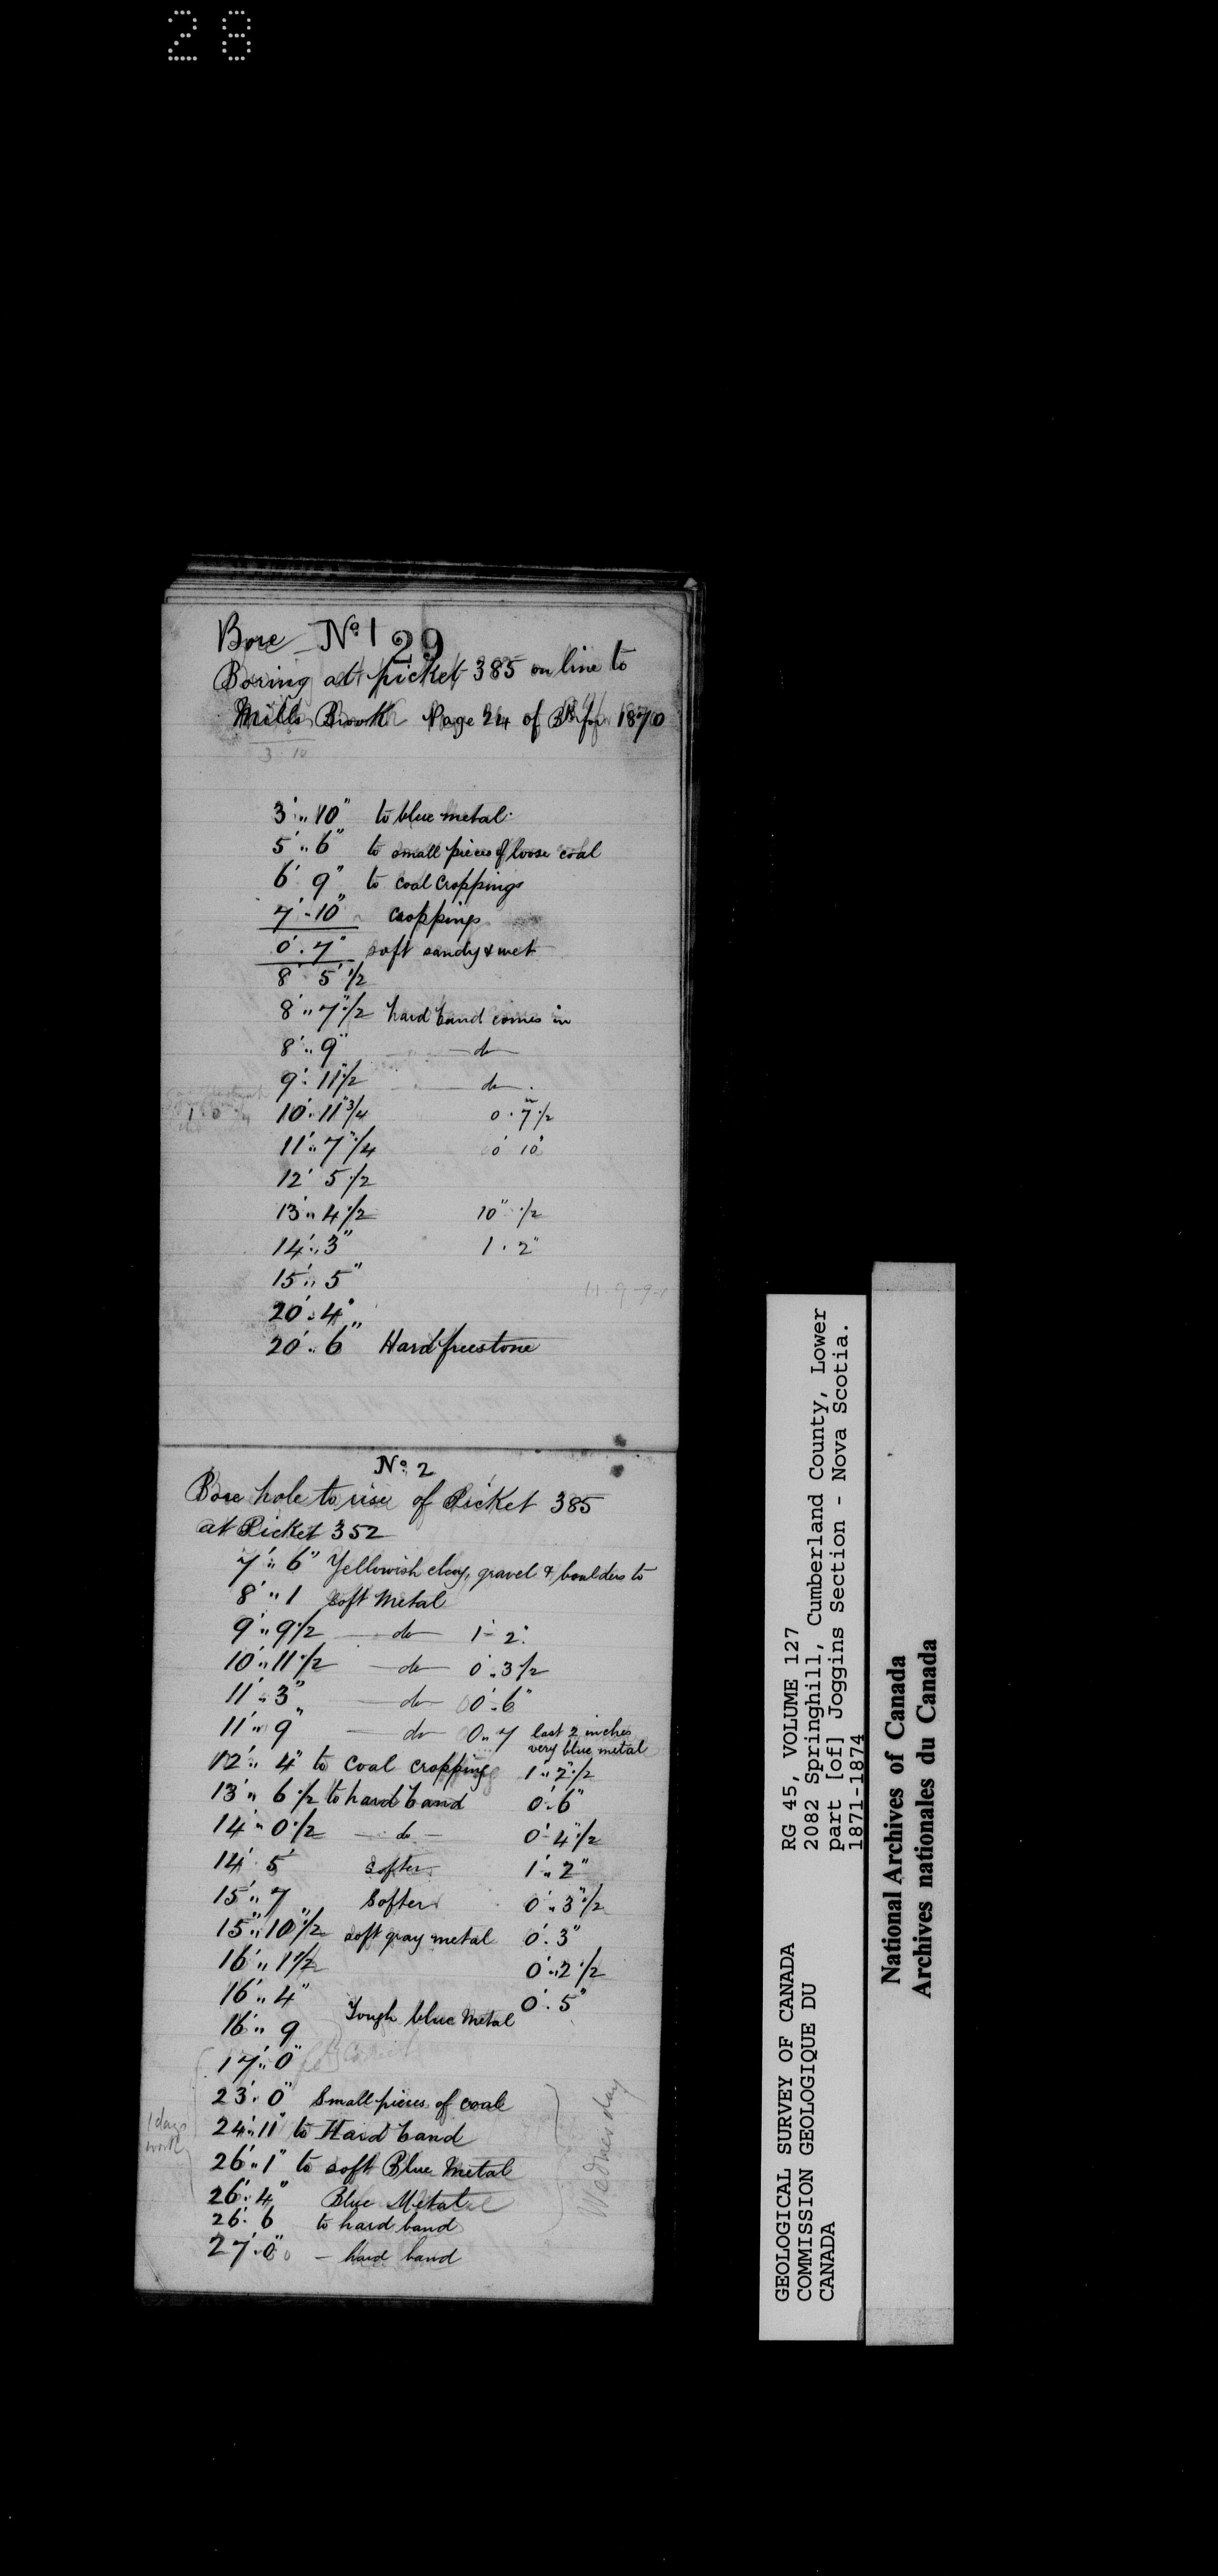 28
Bore Nº 1
29
Boring at picket 385 on line to
Mills Brook Page 24 of Bk for 1870
3 10
3'" 10" to blue metal
5'" 6" to small pieces of loose coal
6' 9" to coal croppings
7'-10" croppings
0'.7" soft sandy & wet
8' 5" 1/2
8'" 7" 1/2 hard band comes in
8'" 9" — do —
9'" 11" 1/2 — do —
10'" 11" 3/4 0 . 7" 1/2
11'" 7" 1/4 0' 10"
12' 5 1/2
13'" 4 1/2 10" 1/2
14'" 3" 1 . 2"
15'" 5"
20'" 4"
20'" 6" Hard freestone
Nº 2
Bore hole to rise of Picket 385
at Picket 352
7'" 6" Yellowish clay, gravel & boulders to
8'" 1 soft metal
9'" 9 1/2 — do — 1'- 2"
10'" 11 1/2 — do — 0'. 3 1/2
11'" 3" — do — 0'. 6"
11'" 9" — do — 0" 7 last 2 inches
very blue metal
12'" 4" to coal croppings 1'" 2" 1/2
13'" 6 1/2 to hard band 0'. 6"
14'" 0 1/2 — do — 0'- 4" 1/2
14' 5' Softer 1'" 2"
15'" 7 Softer 0'" 3" 1/2
15'" 10" 1/2 soft gray metal 0'. 3"
16'" 1 1/2 0'" 2" 1/2
16'" 4" 0'. 5"
16'" 9 Tough blue metal
17'" 0"
23'" 0" Small pieces of coal
24'" 11" to Hard band
1 days
work
26'" 1" to soft Blue Metal
26'" 4" Blue Metal
26'" 6 to hard band
27'" 0" — hard band
Wednesday
GEOLOGICAL SURVEY OF CANADA
COMMISSION GEOLOGIQUE DU
CANADA
RG 45, VOLUME 127
2082 Springhill, Cumberland County, Lower
part [of] Joggins Section - Nova Scotia.
1871-1874
National Archives of Canada
Archives nationales du Canada